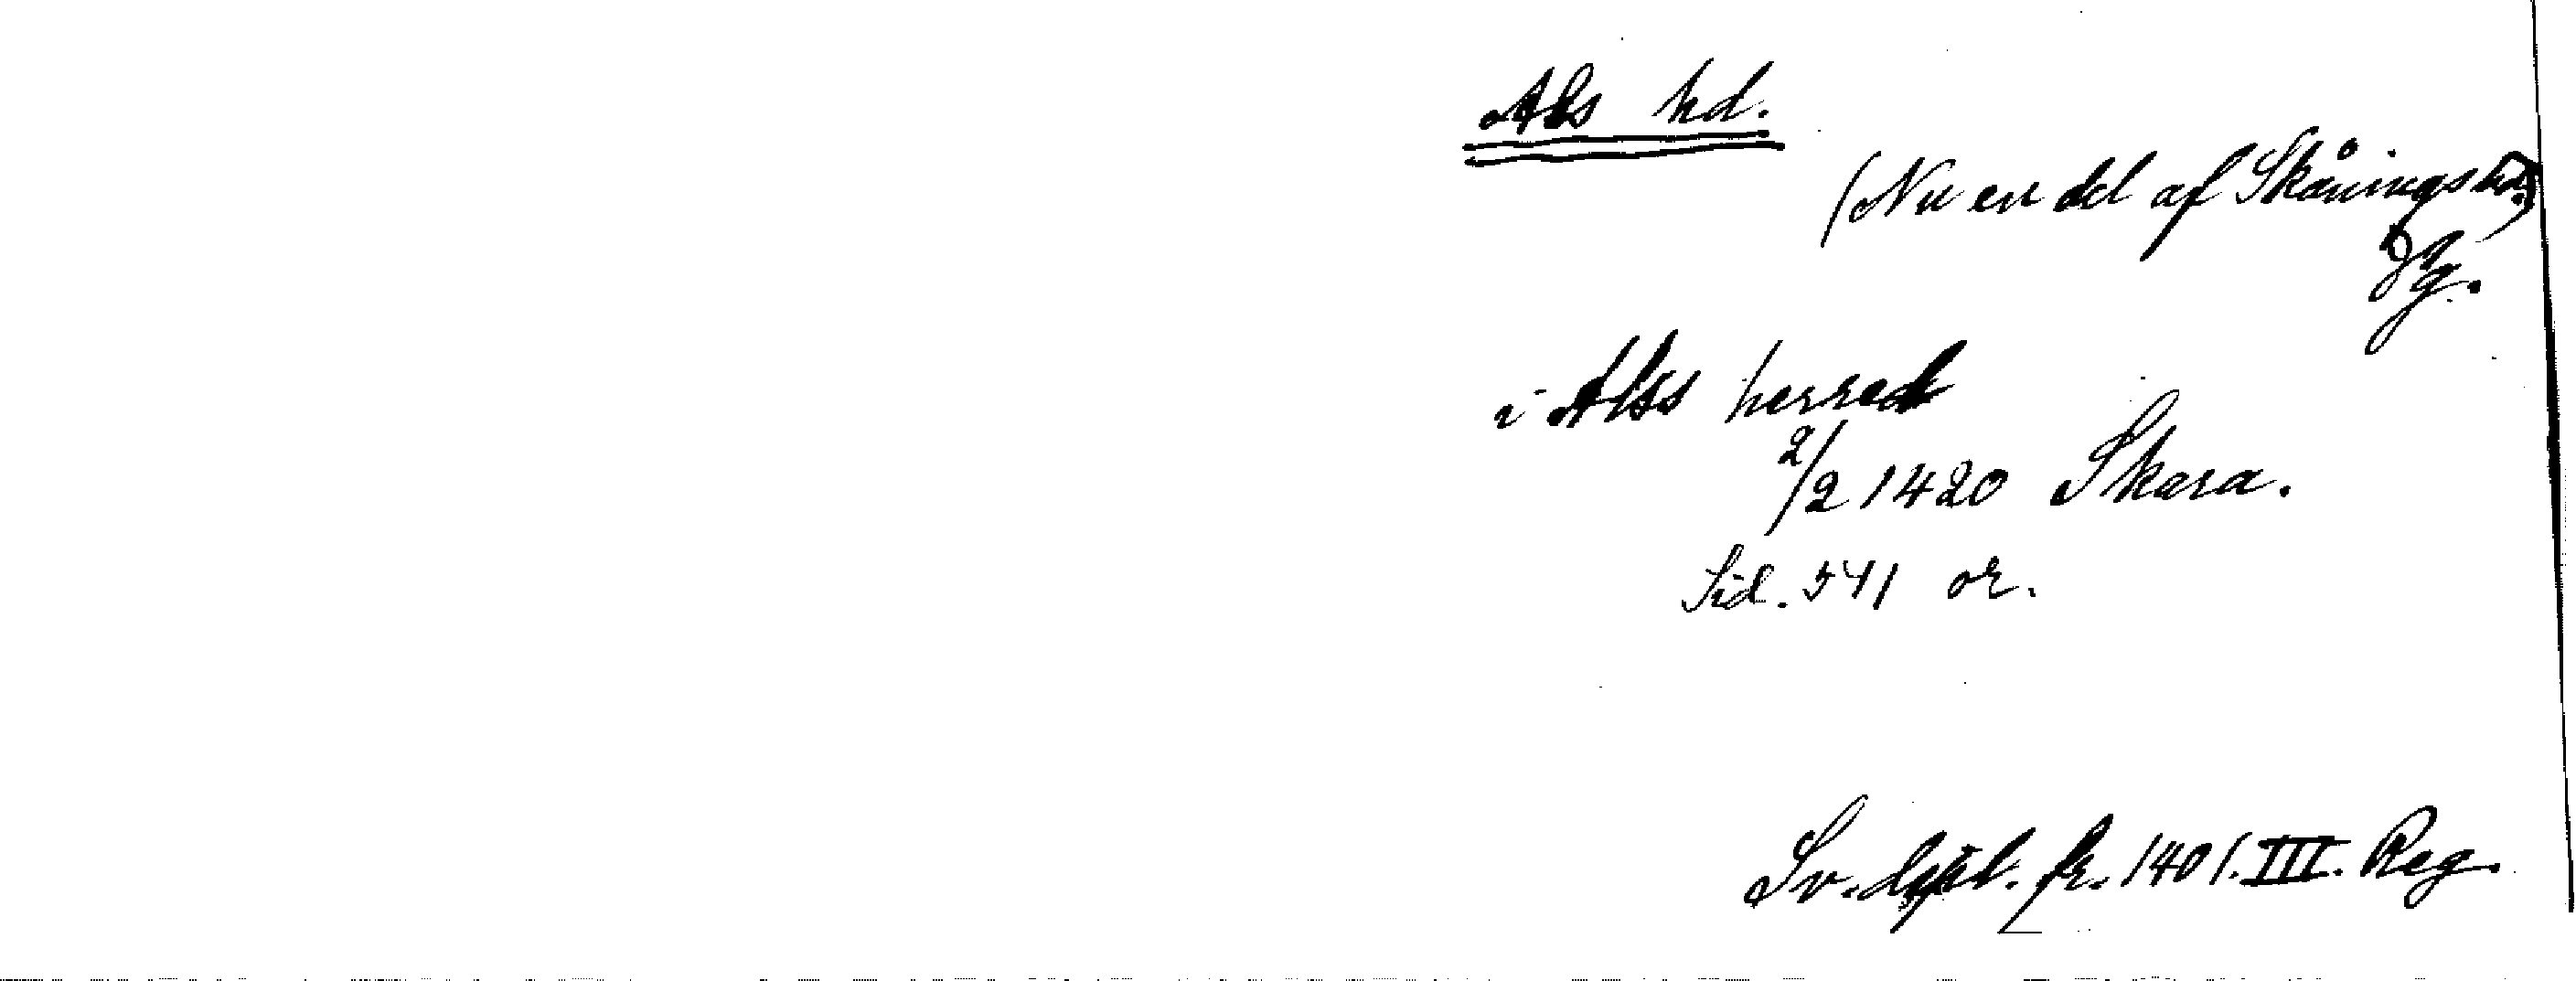 Als hd.
(Nu en del af Skånings hd.)
Vg.
i Alss herred
2/2 1420 Skara.
Sid. 541 or.
Sv. dipl. fr. 1401. III. Reg.